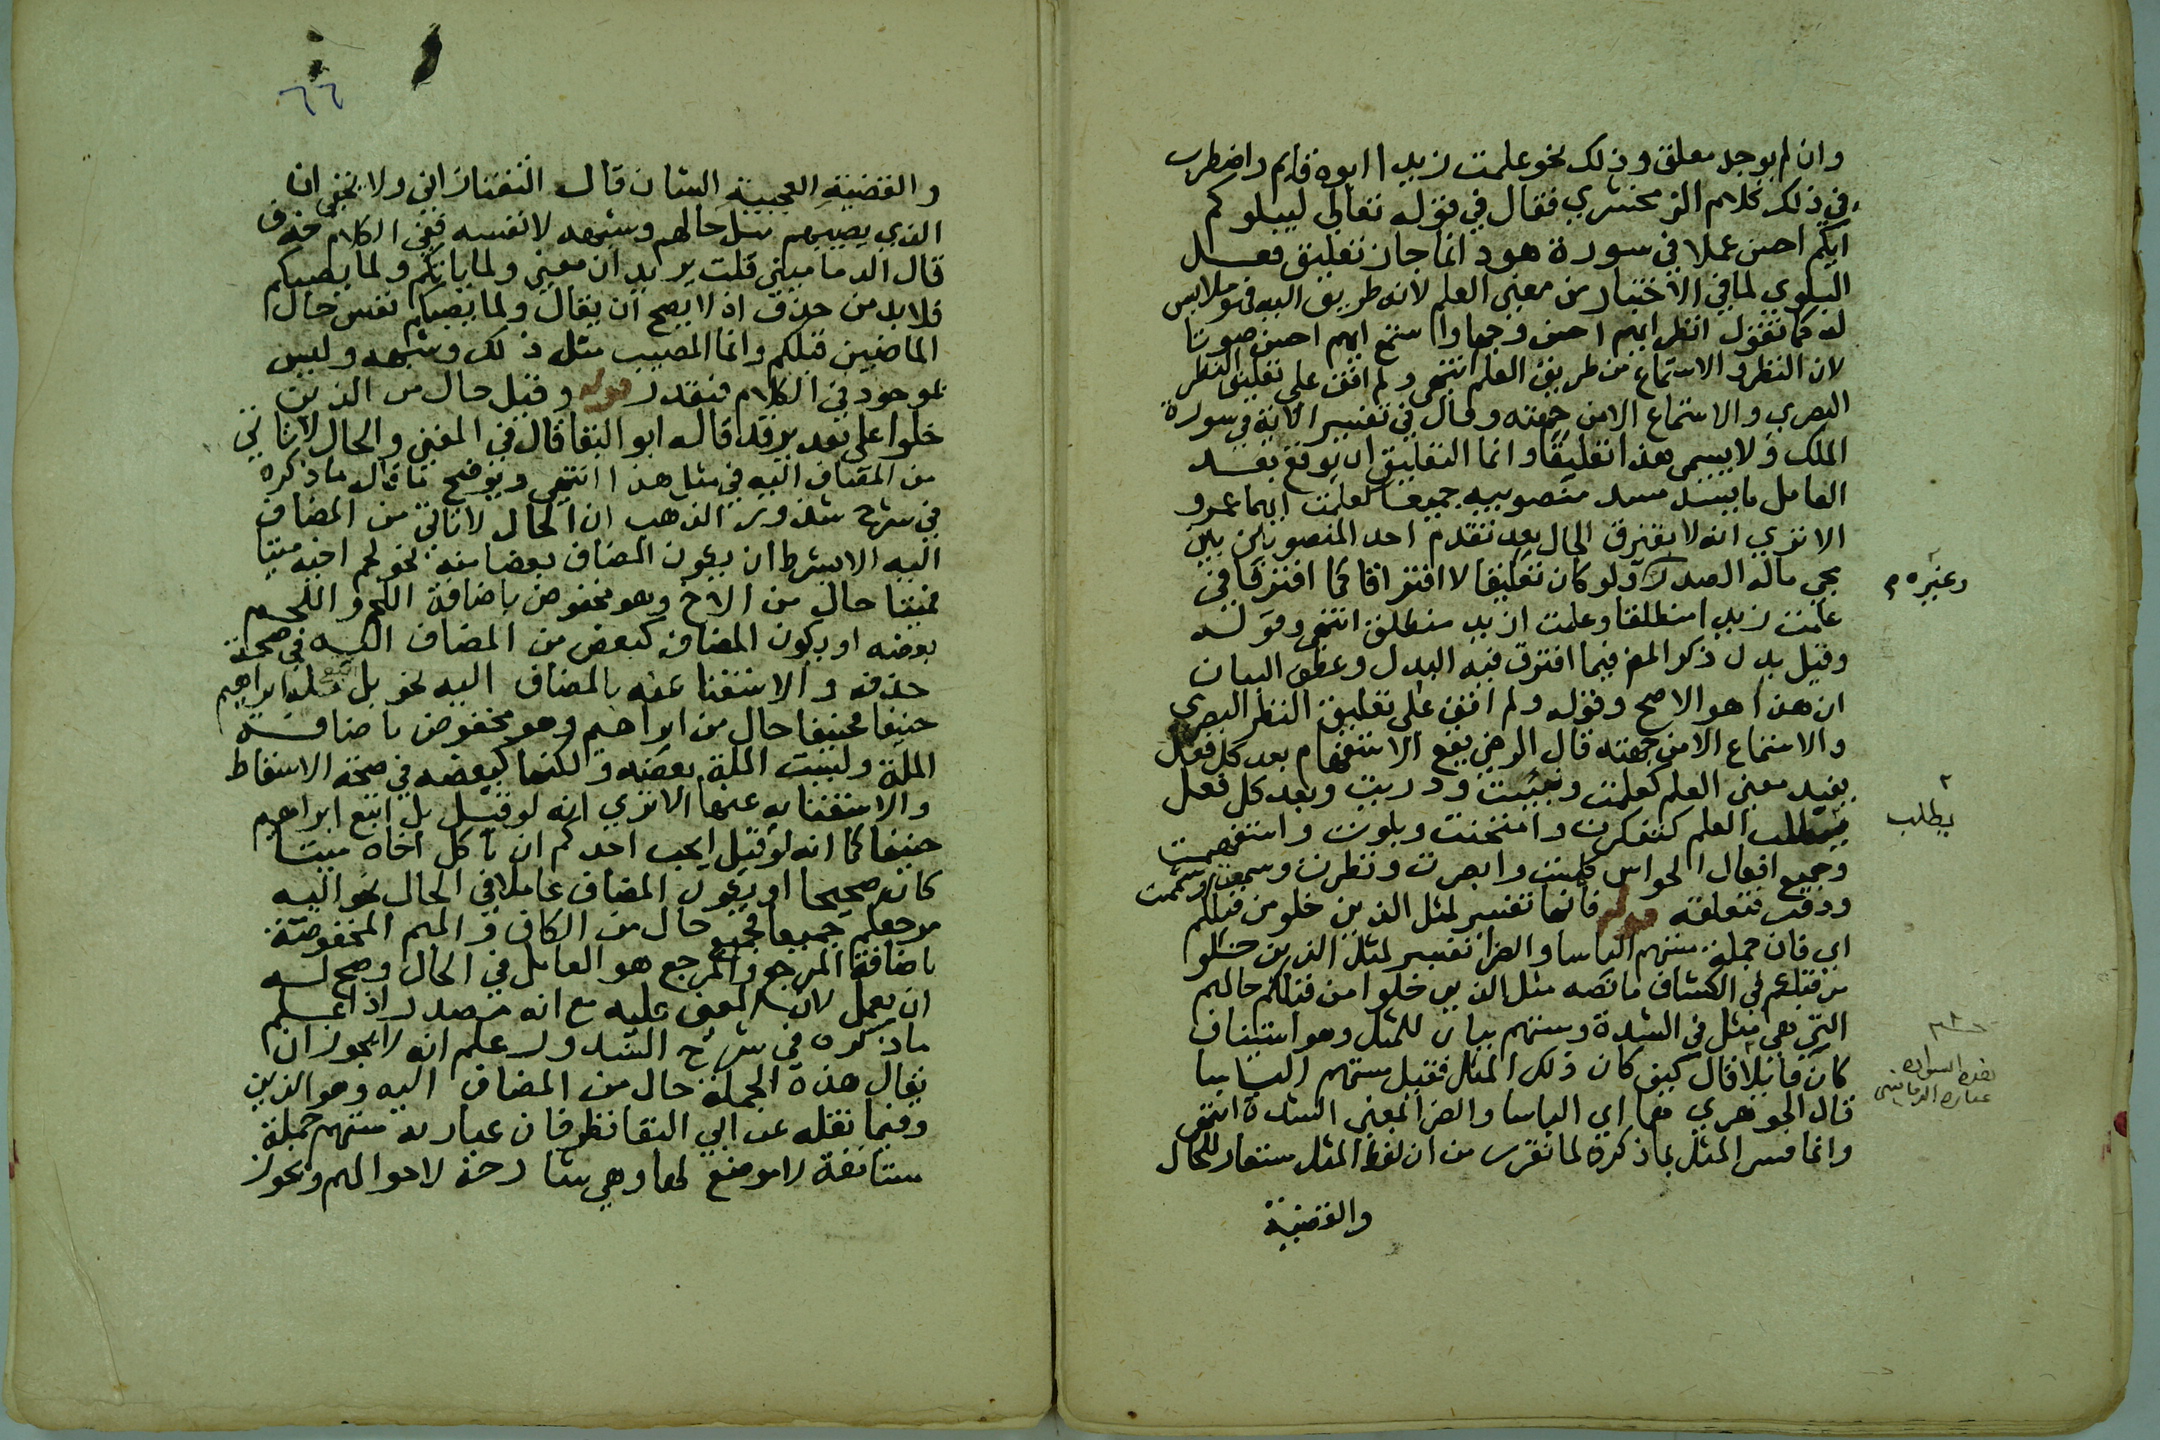 وان لم يوجد معلق وذلك نحو علمت زيدا ابوه قايم واضطرب
في ذلك كلام الزمخشري فقال في قوله تعالى ليبلوكم
ايكم احسن عملا في سورة هود انما جاز تعليق فعل
البلوي لما في الاختبار من معنى العلم لانه طريق اليه فهو ملابس
له كما تقول انظر ايهم احسن وجها واستمع ايهم احسن صوتا
لان النظر والاستماع من طريق العلم انتهى ولم اقف على تعليق النظر
البصري والاستماع الا من جهته وقال في تفسير الاية في سورة
الملك ولا يسمى هذا تعليقا وانما التعليق ان يوقع بعد
العامل ما يسد مسد منصوبيه جميعا كعلمت ايهما عمرو
الا تري انه لا يفترق الحال بعد تقدم احد المنصوبين بين
مجي ماله الصدر ولو كان تعليقا لافترقا كما افترقا في
علمت زيدا منطلقا وعلمت ازيد منطلق انتهى وقوله
وقيل بدل ذكر المص فيما افترق فيه البدل وعطف البيان
ان هذا هو الاصح وقوله ولم اقف على تعليق النظر البصري
والاستماع الا من جهته قال الرضي يقع الاستفهام بعد كل فعل
يفيد معنى العلم كعلمت وتبينت ودريت وبعد كل فعل
يطلب العلم كتفكرت وامتحنت وبلوت واستفهمت
وجميع افعال الحواس كلمست وابصرت ونظرت وسمعت وشممت
وذقت فتعلقه قوله فانها تفسير لمثل الذين خلو من قبلكم
اي فان جملة مستهم الباسا والضرا تفسير لمثل الذين خلو
من قبلكم في الكشاف ما نصه مثل الذين خلوا من قبلكم حالهم
التي هي مثل في الشدة ومستهم بيان للمثل وهو استيناف
كان قايلا قال كيف كان ذلك المثل فقيل مستهم الباسا
قال الجوهري هما اي الباسا والضرا بمعنى الشدة انتهى
وانما فسر المثل بما ذكره لما تقرر من ان لفظ المثل مستعار للحال
والقضية
وغيره م
يطلب
٦٦
والقضية العجيبة الشان قال التفتازاني ولا يخفي ان
الذي يصيبهم مثل حالهم وشبهه لا نفسه ففي الكلام حذف
قال الدماميني قلت يريد ان معنى ولما ياتكم ولما يصيبكم
فلا بد من حذف اذ لا يصح ان يقال ولما يصيبكم نفس حال
الماضين قبلكم وانما المصيب مثل ذلك وشبهه وليس
بموجود في الكلام فيقدر قوله وقيل حال من الذين
خلوا على تقدير قد قاله ابو البقا قال في المغني والحال لا تاتي
من المضاف اليه في مثل هذا انتهى ويوضح ما قاله ما ذكره
في شرح شذور الذهب ان الحال لا تاتي من المضاف
اليه الا بشرط ان يكون المضاف بعضا منه نحو لحم اخيه ميتا
فميتا حال من الاخ وهو مخفوض باضافة اللحم واللحم
بعضه او يكون المضاف كبعض من المضاف اليه في صحة
حذفه والاستغنا عنه بالمضاف اليه نحو بل ملة ابراهيم
حنيفا فحنيفا حال من ابراهيم وهو مخفوض باضافة
الملة وليست الملة بعضه ولكنها كبعضه في صحة الاسقاط
والاستغنا به عنها الا تري انه لو قيل بل اتبع ابراهيم
حنيفا كما انه لو قيل ايحب احدكم ان ياكل اخاه ميتا
كان صحيحا او يكون المضاف عاملا في الحال نحو اليه
مرجعكم جميعا فجميع حال من الكاف والميم المخفوضة
باضافة المرجع والمرجع هو العامل في الحال وصح له
ان يعمل لان المعنى عليه مع انه مصدر اذا علم
ما ذكره في شرح الشذور علم انه لا يجوز ان
يقال هذه الجملة حال من المضاف اليه وهو الذين
وفيما نقله عن ابي البقا نظر فان عبارته مستهم جملة
مستانفة لا موضع لها وهي شارحة لاحوالهم ويجوز